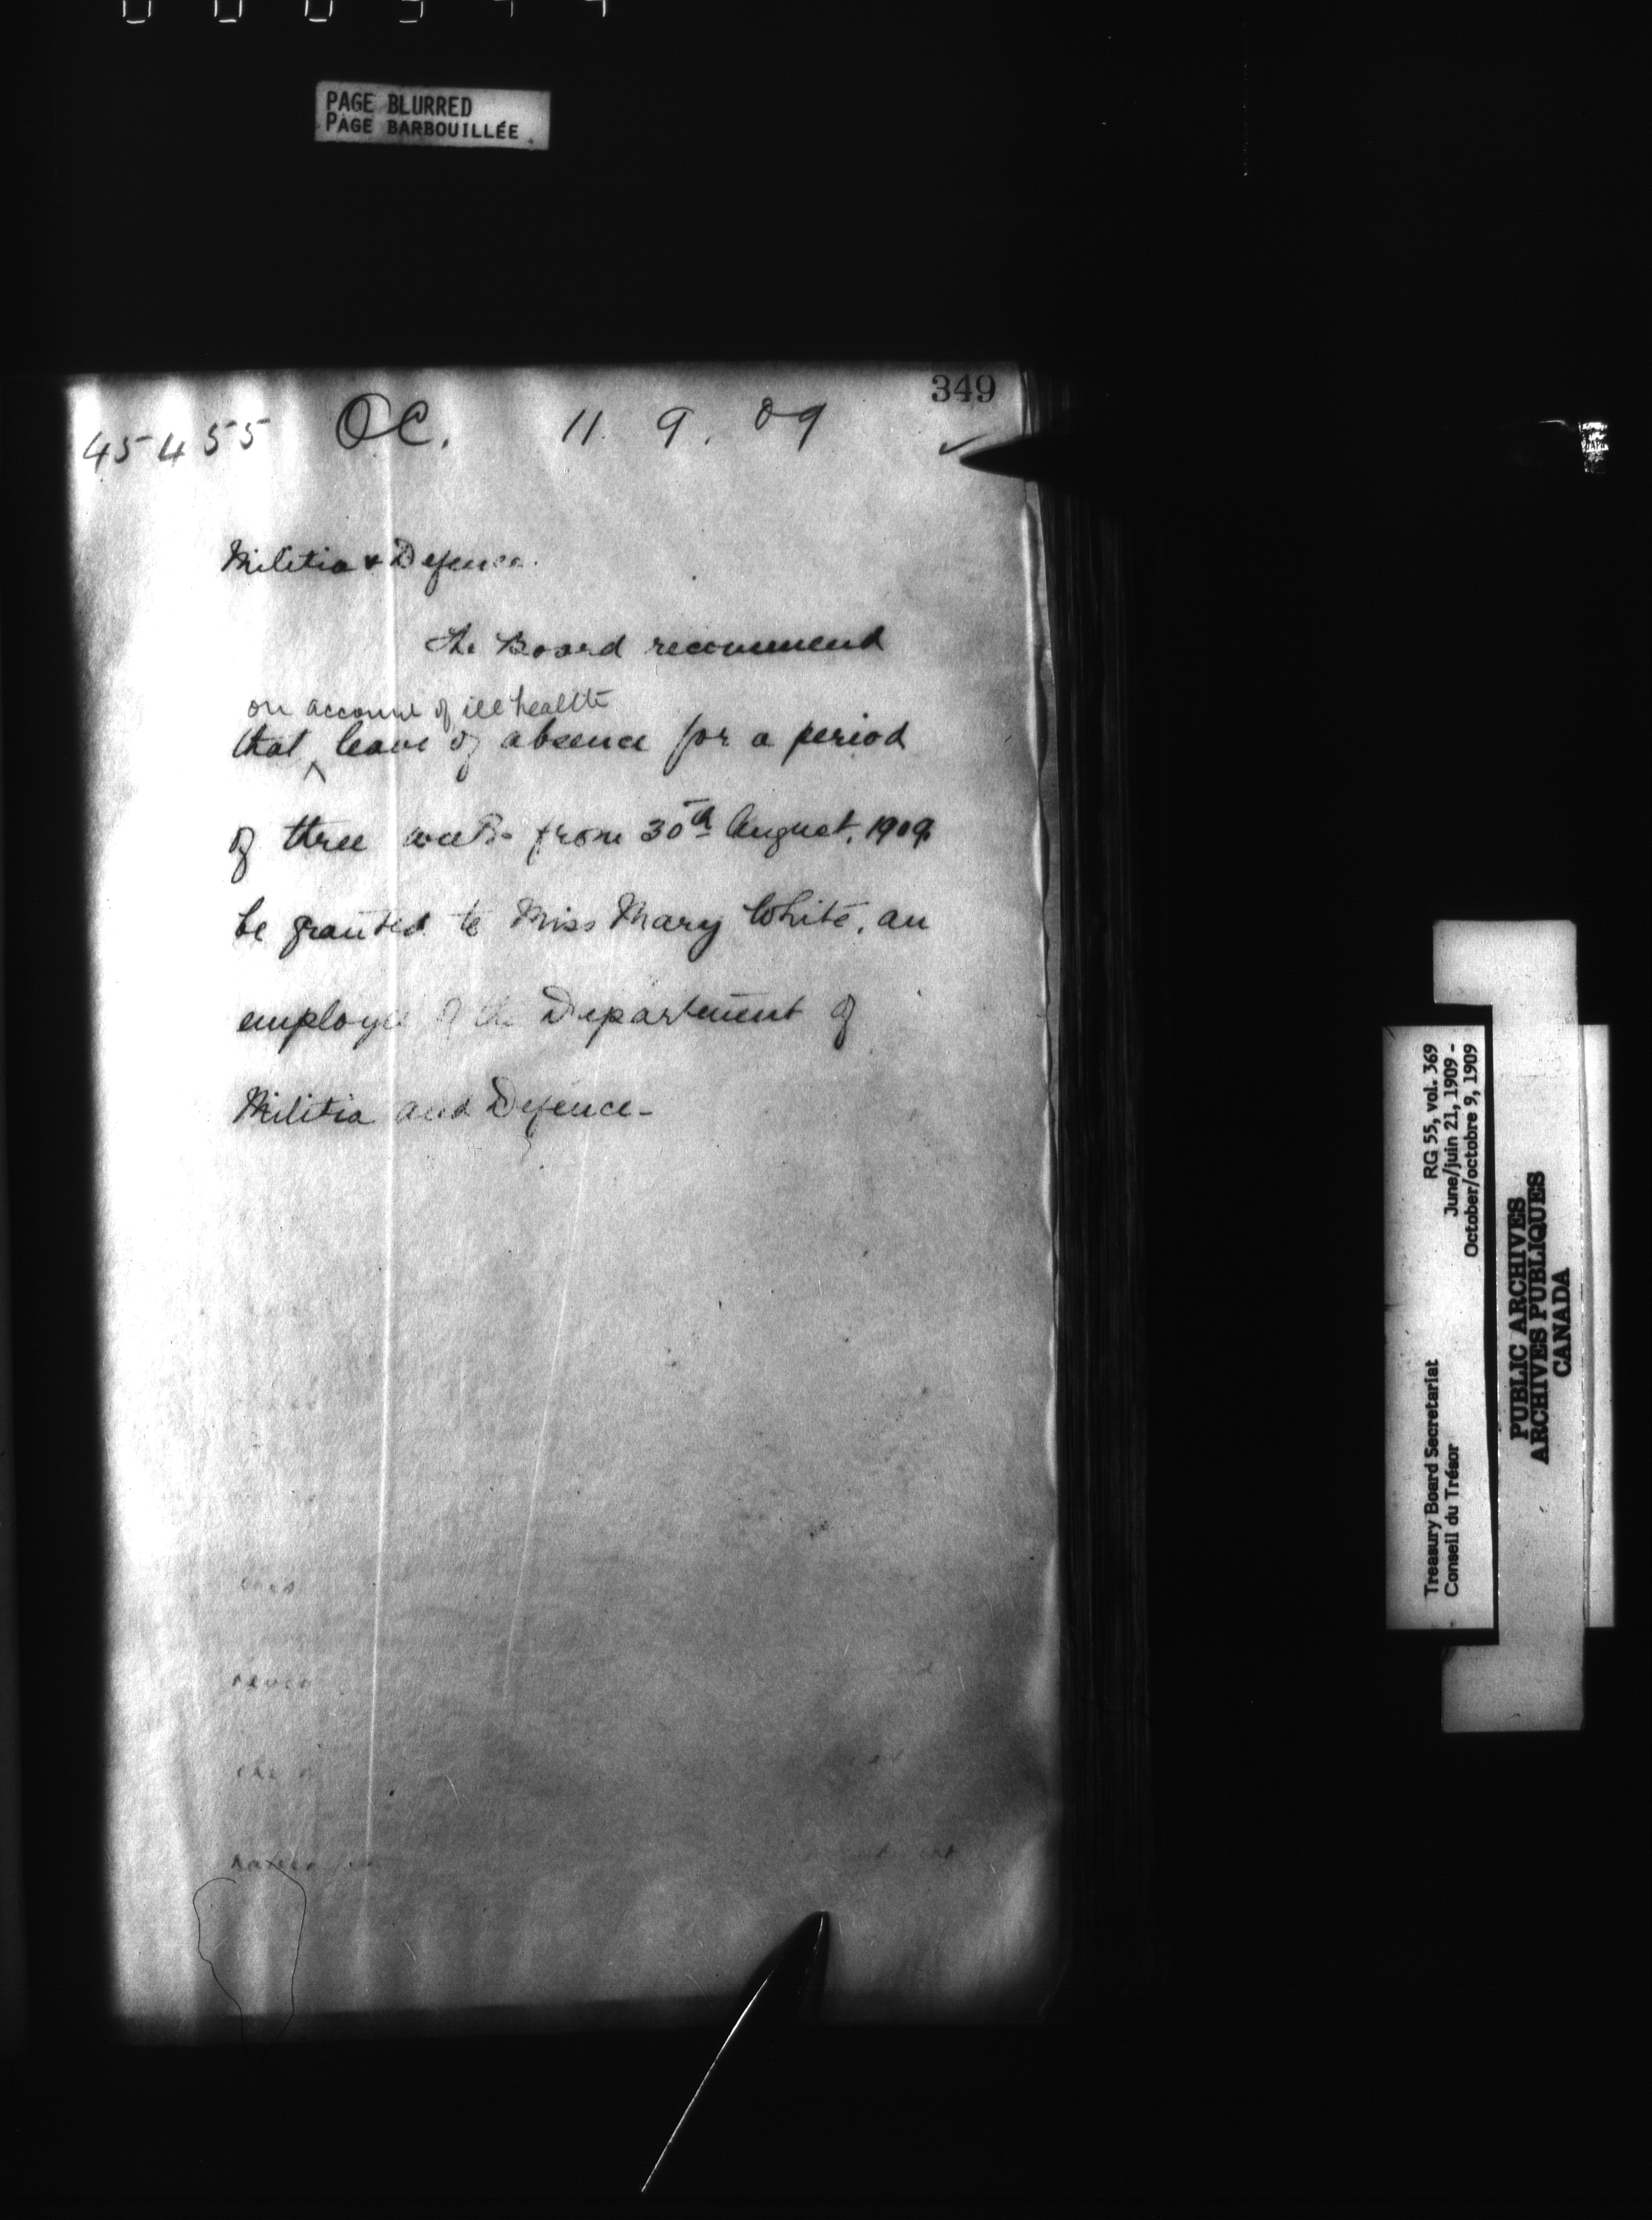 PAGE BLURRED
PAGE BARBOUILLÉE
349
45455 OC. 11. 9. 09
Militia & Defence.
The Board recommend
on account of ill health
that ^ leave of absence for a period
of three weeks from 30th August, 1909
be granted to Miss Mary White, an
employee of the Department of
Militia and Defence-
Treasury Board Secretariat RG 55, vol. 369
Conseil du Trésor June/juin 21, 1909 -
October/octobre 9, 1909
PUBLIC ARCHIVES
ARCHIVES PUBLIQUES
CANADA